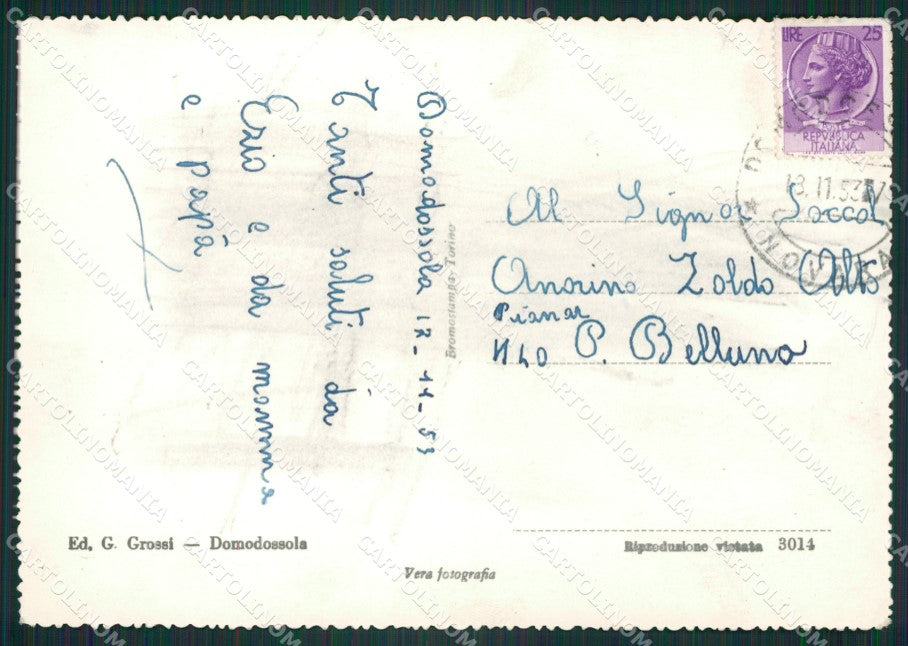 Domodossola 17-11-53
Tanti saluti da
Ezio e da mamma
e papá
Bromostampa-Torino
LIRE 25
POSTE
REPVBBLICA
ITALIANA
18.11.53
NOVARA
Al Signor
Zoldo Alto
Pianaz
N40 P. Belluno
Ed. G. Grossi — Domodossola
Riproduzione vietata 3014
Vera fotografia
CARTOLINOMANIA